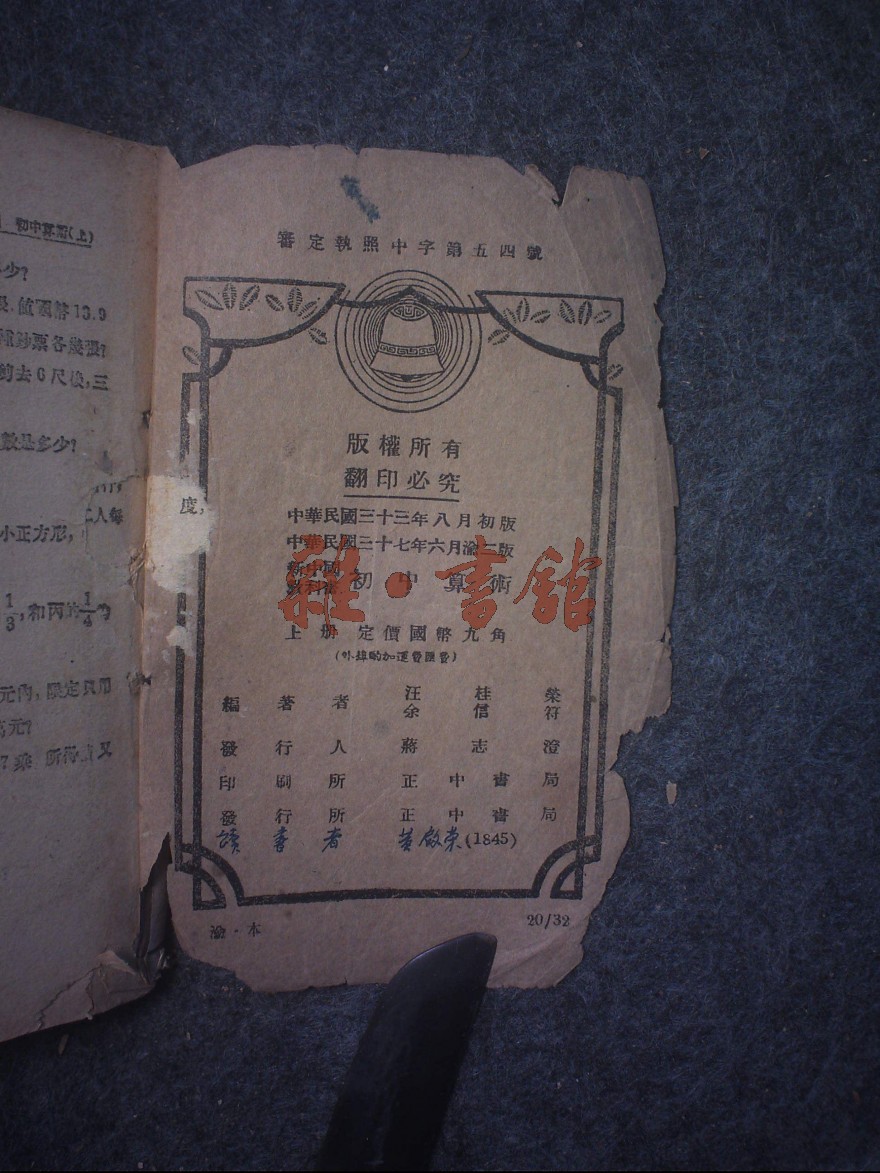 初中算術(上)
少?
值國幣13.9
鈔票各幾張?
去6尺後,三
數是多少?
人每
小正方形,
1/3,和丙的1/4
元內,限定只用
元?
所得
度,
審定執照中字第五四號
版權所有
翻印必究
中華民國三十三年八月初版
中華民國三十七年六月渝 版
新中國教科書 初中算術
上冊 定價國幣九角
(外埠酌加運費匯費)
編著者 汪桂榮 余信符
發行人 蔣志澄
印刷所 正中書局
發行所 正中書局
讀書者 黃啟荣(1845)
渝·本
20/32
雜·書館